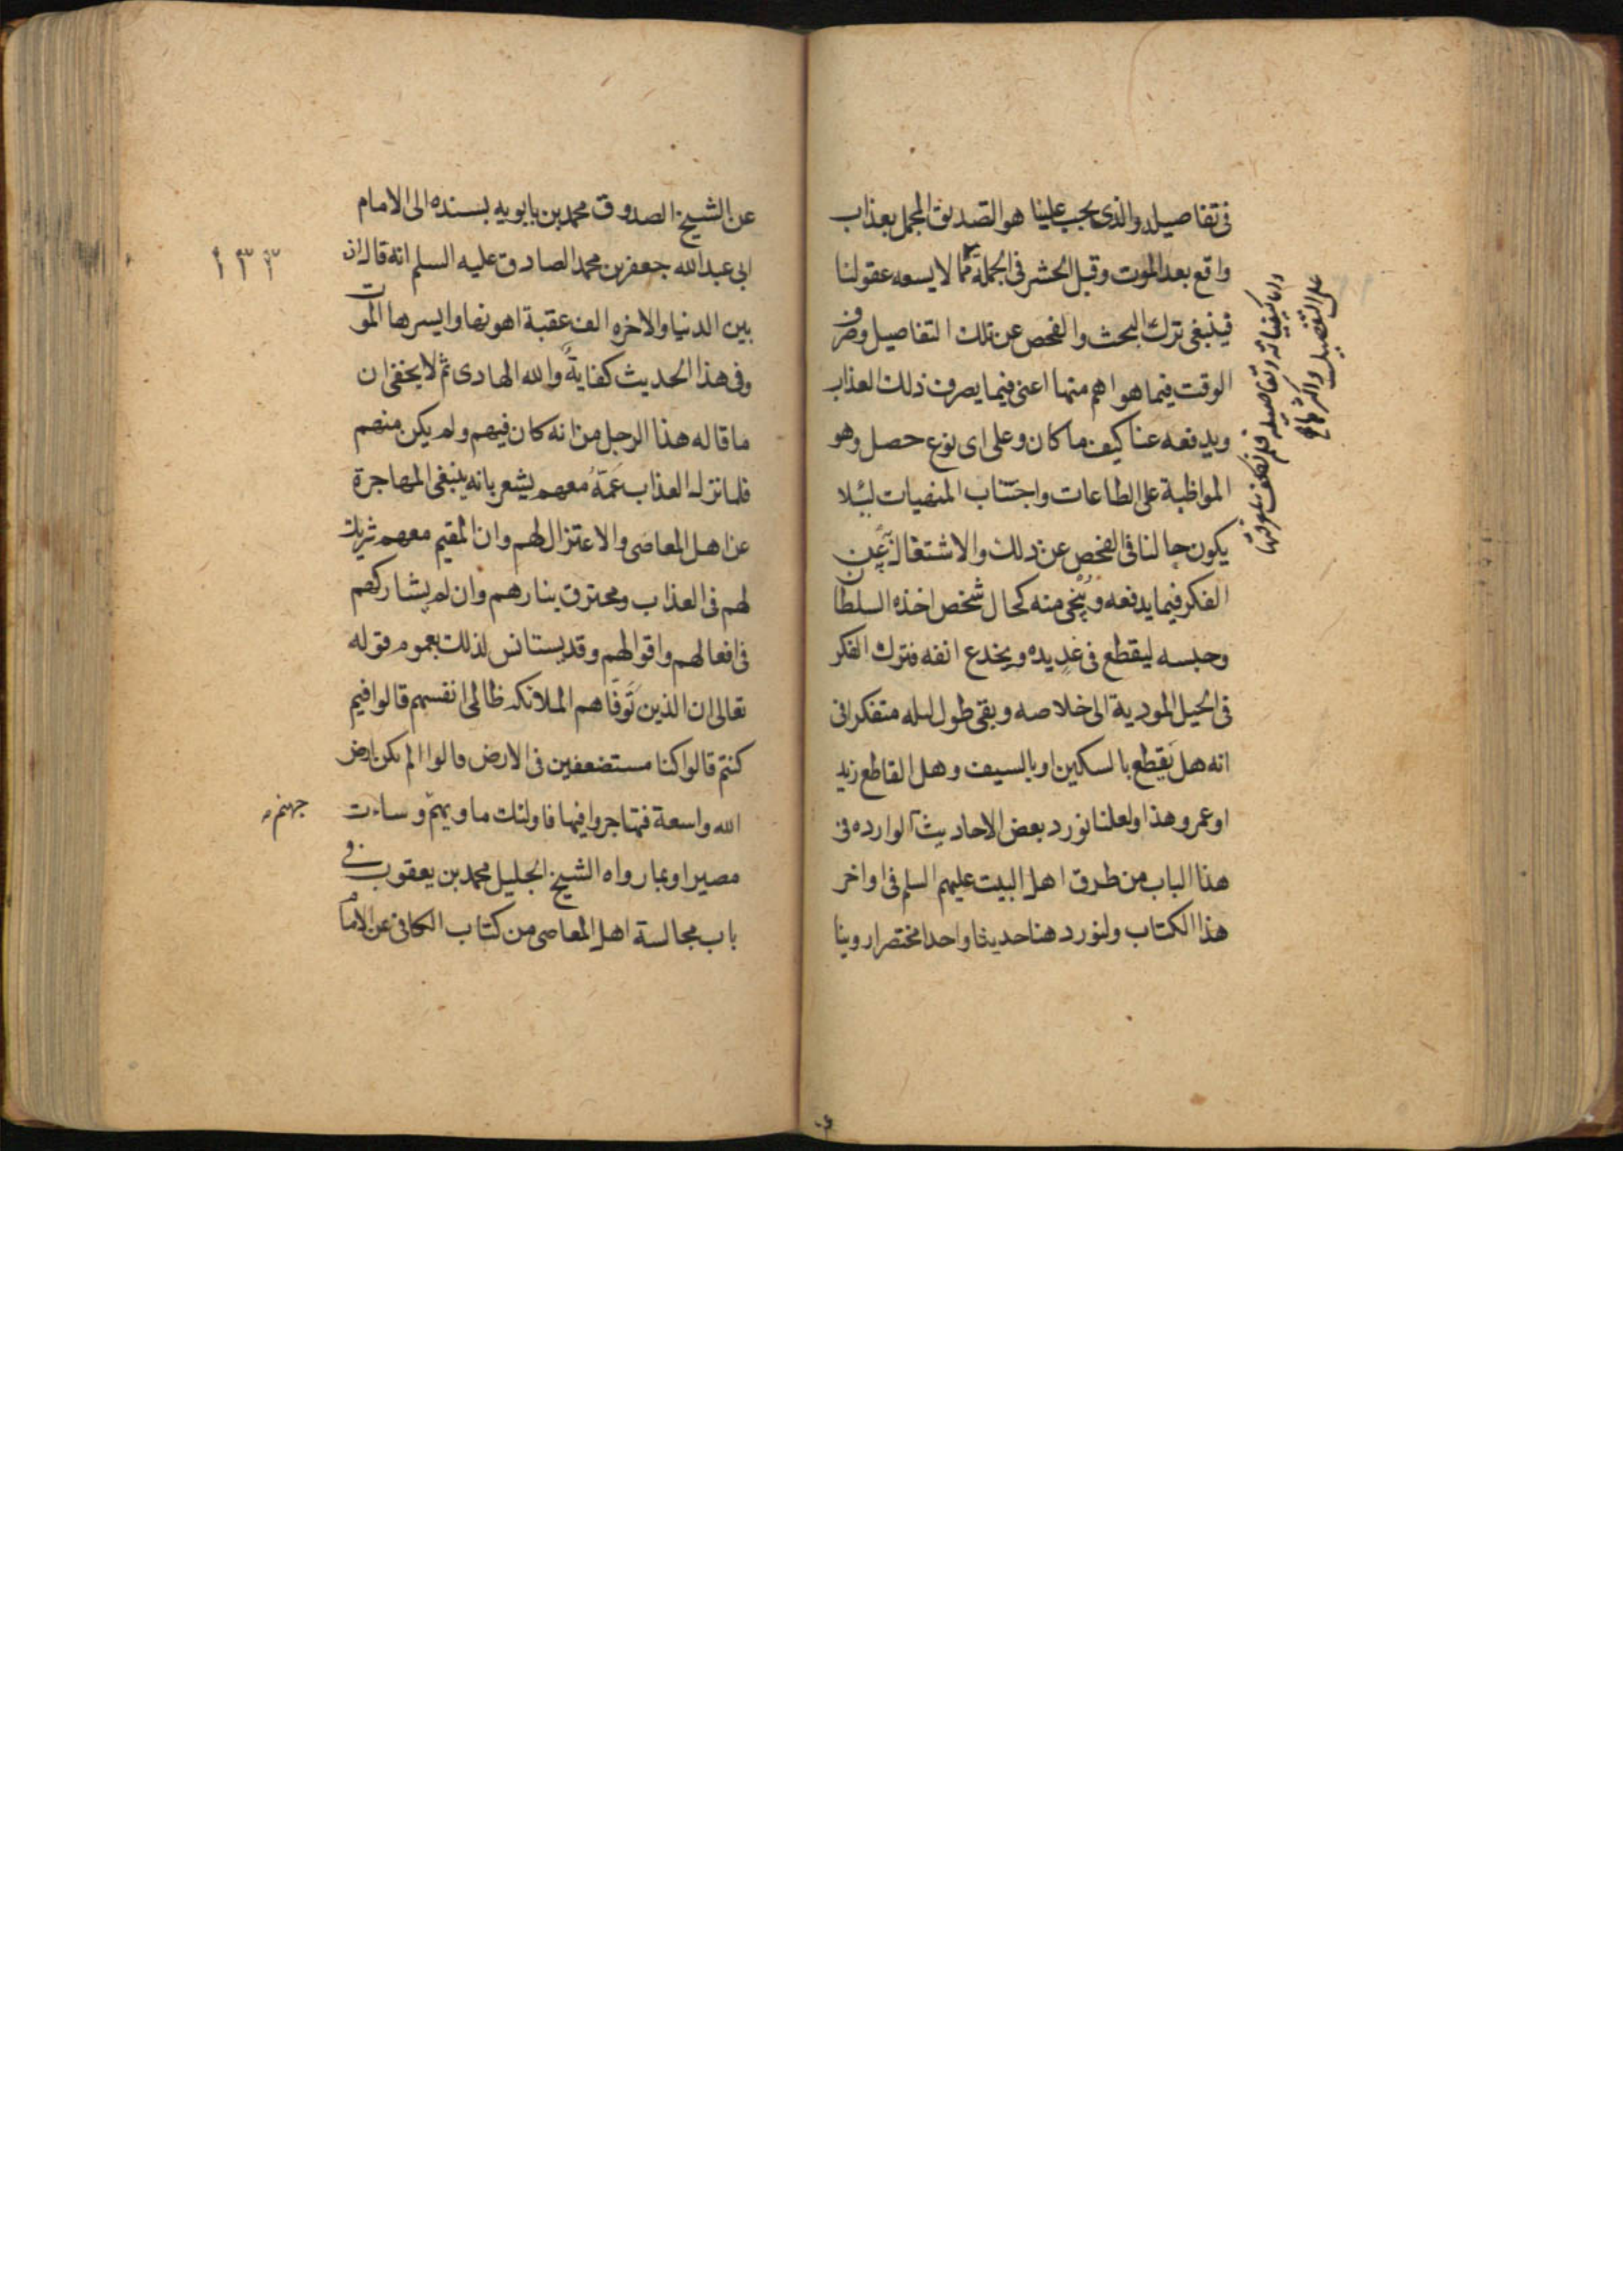 فى تفاصيله والذى يجب علينا هو التصديق المجمل بعذاب
واقع بعد الموت وقبل الحشر فى الجملة مما لا يسعه عقولنا
فينبغى ترك البحث والفحص عن تلك التفاصيل وصرف
الوقت فيما هو اهم منها اعنى فيما يصرف ذلك العذاب
ويدفعه عنا كيف ما كان وعلى اى نوع حصل وهو
المواظبة على الطاعات واجتناب المنهيات لئلا
يكون حالنا فى الفحص عن ذلك والاشتغال به عن
الفكر فيما يدفعه وينجى منه كحال شخص اخذه السلطان
وحبسه ليقطع فى غد يده ويجدع انفه فترك الفكر
فى الحيل المودية الى خلاصه وبقى طول ليله متفكرا فى
انه هل يقطع بالسكين او بالسيف وهل القاطع زيد
او عمرو هذا ولعلنا نورد بعض الاحاديث الوارده فى
هذا الباب من طرق اهل البيت عليهم السلم فى اواخر
هذا الكتاب ولنورد هنا حديثا واحدا مختصرا روينا
واما كيفياته وتفاصيله فلم نكلف بمعرفتها
على التفصيل واكثرها
عن الشيخ الصدوق محمد بن بابويه بسنده الى الامام
ابى عبد الله جعفر بن محمد الصادق عليه السلم انه قال ان
١٣٣
بين الدنيا والاخره الف عقبة اهونها وايسرها الموت
وفى هذا الحديث كفاية والله الهادى ثم لا يخفى ان
ما قاله هذا الرجل من انه كان فيهم ولم يكن منهم
فلما نزل العذاب عمه معهم يشعر بانه ينبغى المهاجرة
عن اهل المعاصى والاعتزال لهم وان المقيم معهم شريك
لهم فى العذاب ومحترق بنارهم وان لم يشاركهم
فى افعالهم واقوالهم وقد يستانس لذلك بعموم قوله
تعالى ان الذين توفاهم الملائكه ظالمى انفسهم قالوا فيم
كنتم قالوا كنا مستضعفين فى الارض قالوا الم تكن ارض
الله واسعة فتهاجروا فيها فاولئك ماويهم وساءت
جهنم
مصيرا وبما رواه الشيخ الجليل محمد بن يعقوب فى
باب مجالسة اهل المعاصى من كتاب الكافى عن الامام